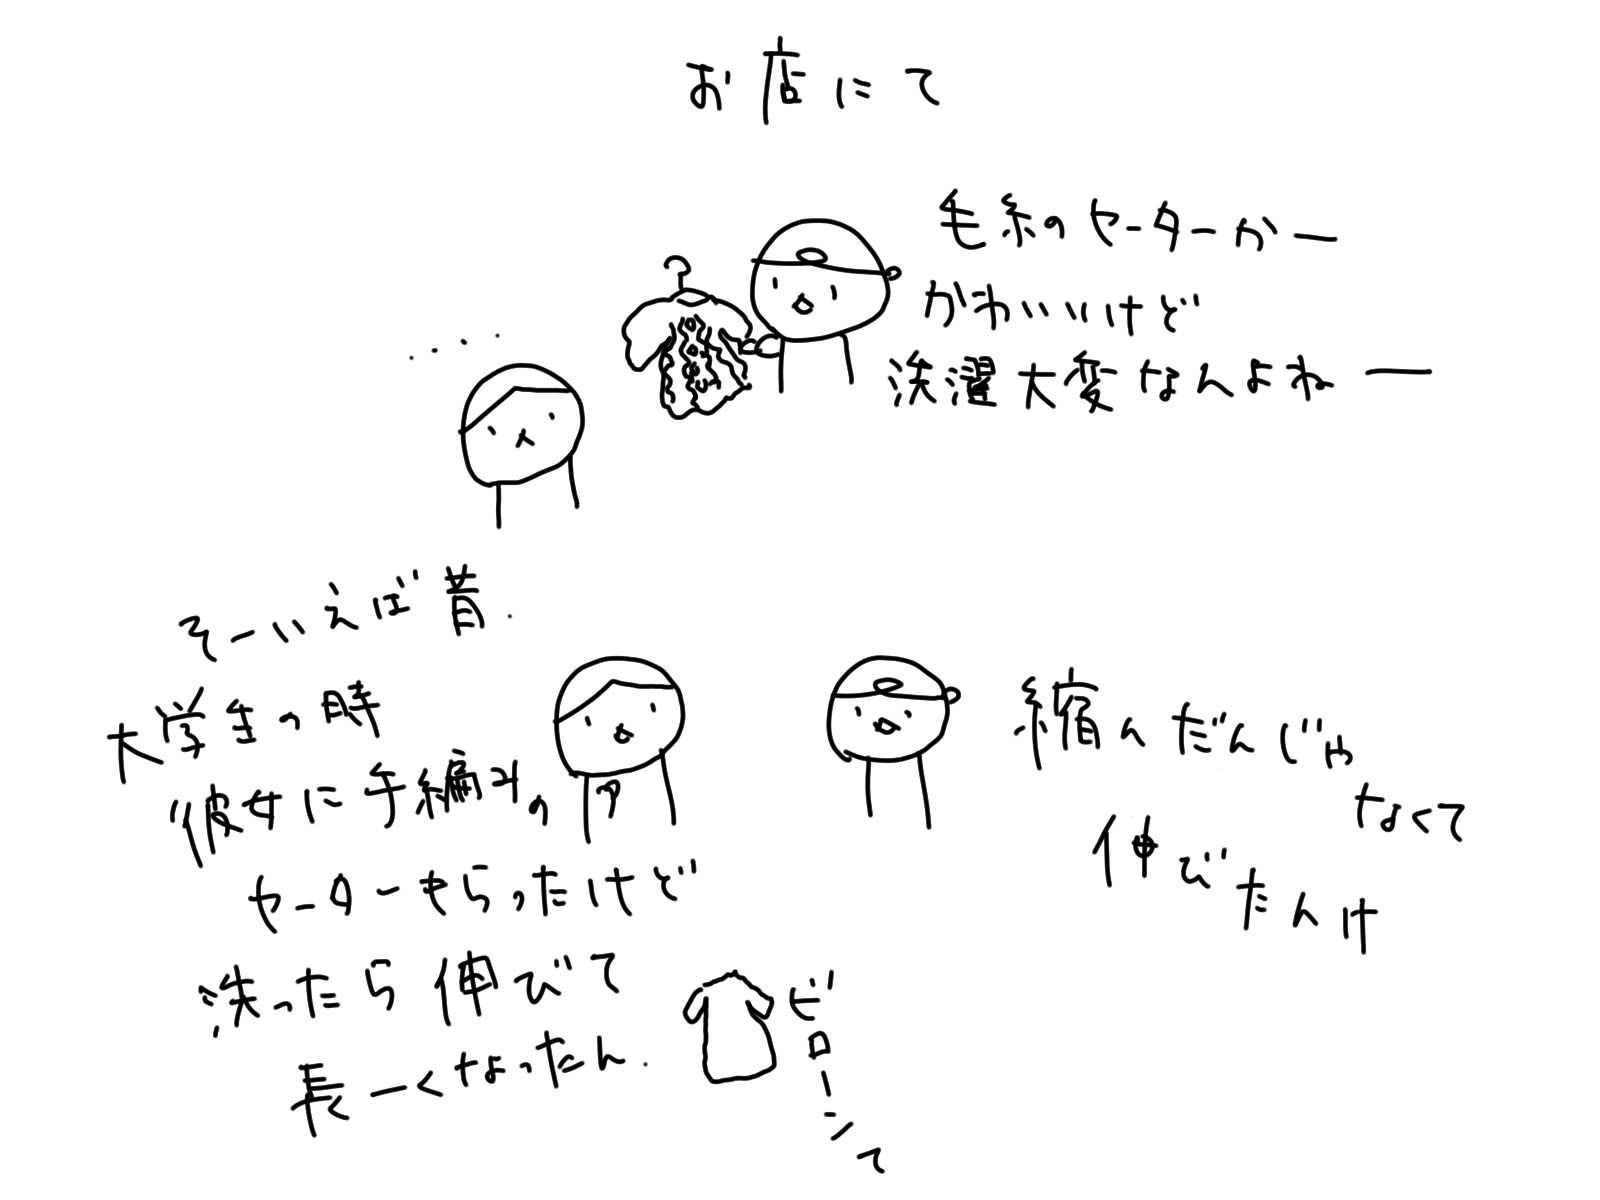 お店にて
毛糸のセーターかー
かわいいけど
洗濯大変なんよねー
....
そーいえば昔.
大学生の時
彼女に手編みの
セーターもらったけど
洗ったら伸びて
長ーくなったん.
ビローンて
縮んだんじゃ
なくて
伸びたんけ